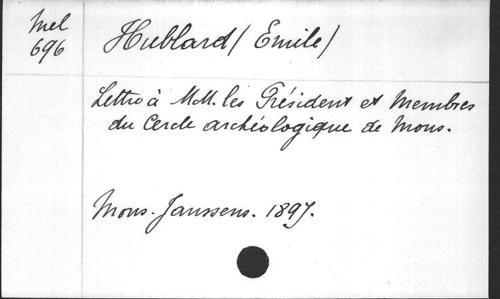 Mel
696
Hublard (Emile)
Lettre à MM. les Président et Membres
du Cercle archéologique de Mons.
Mons. Janssens. 1897.